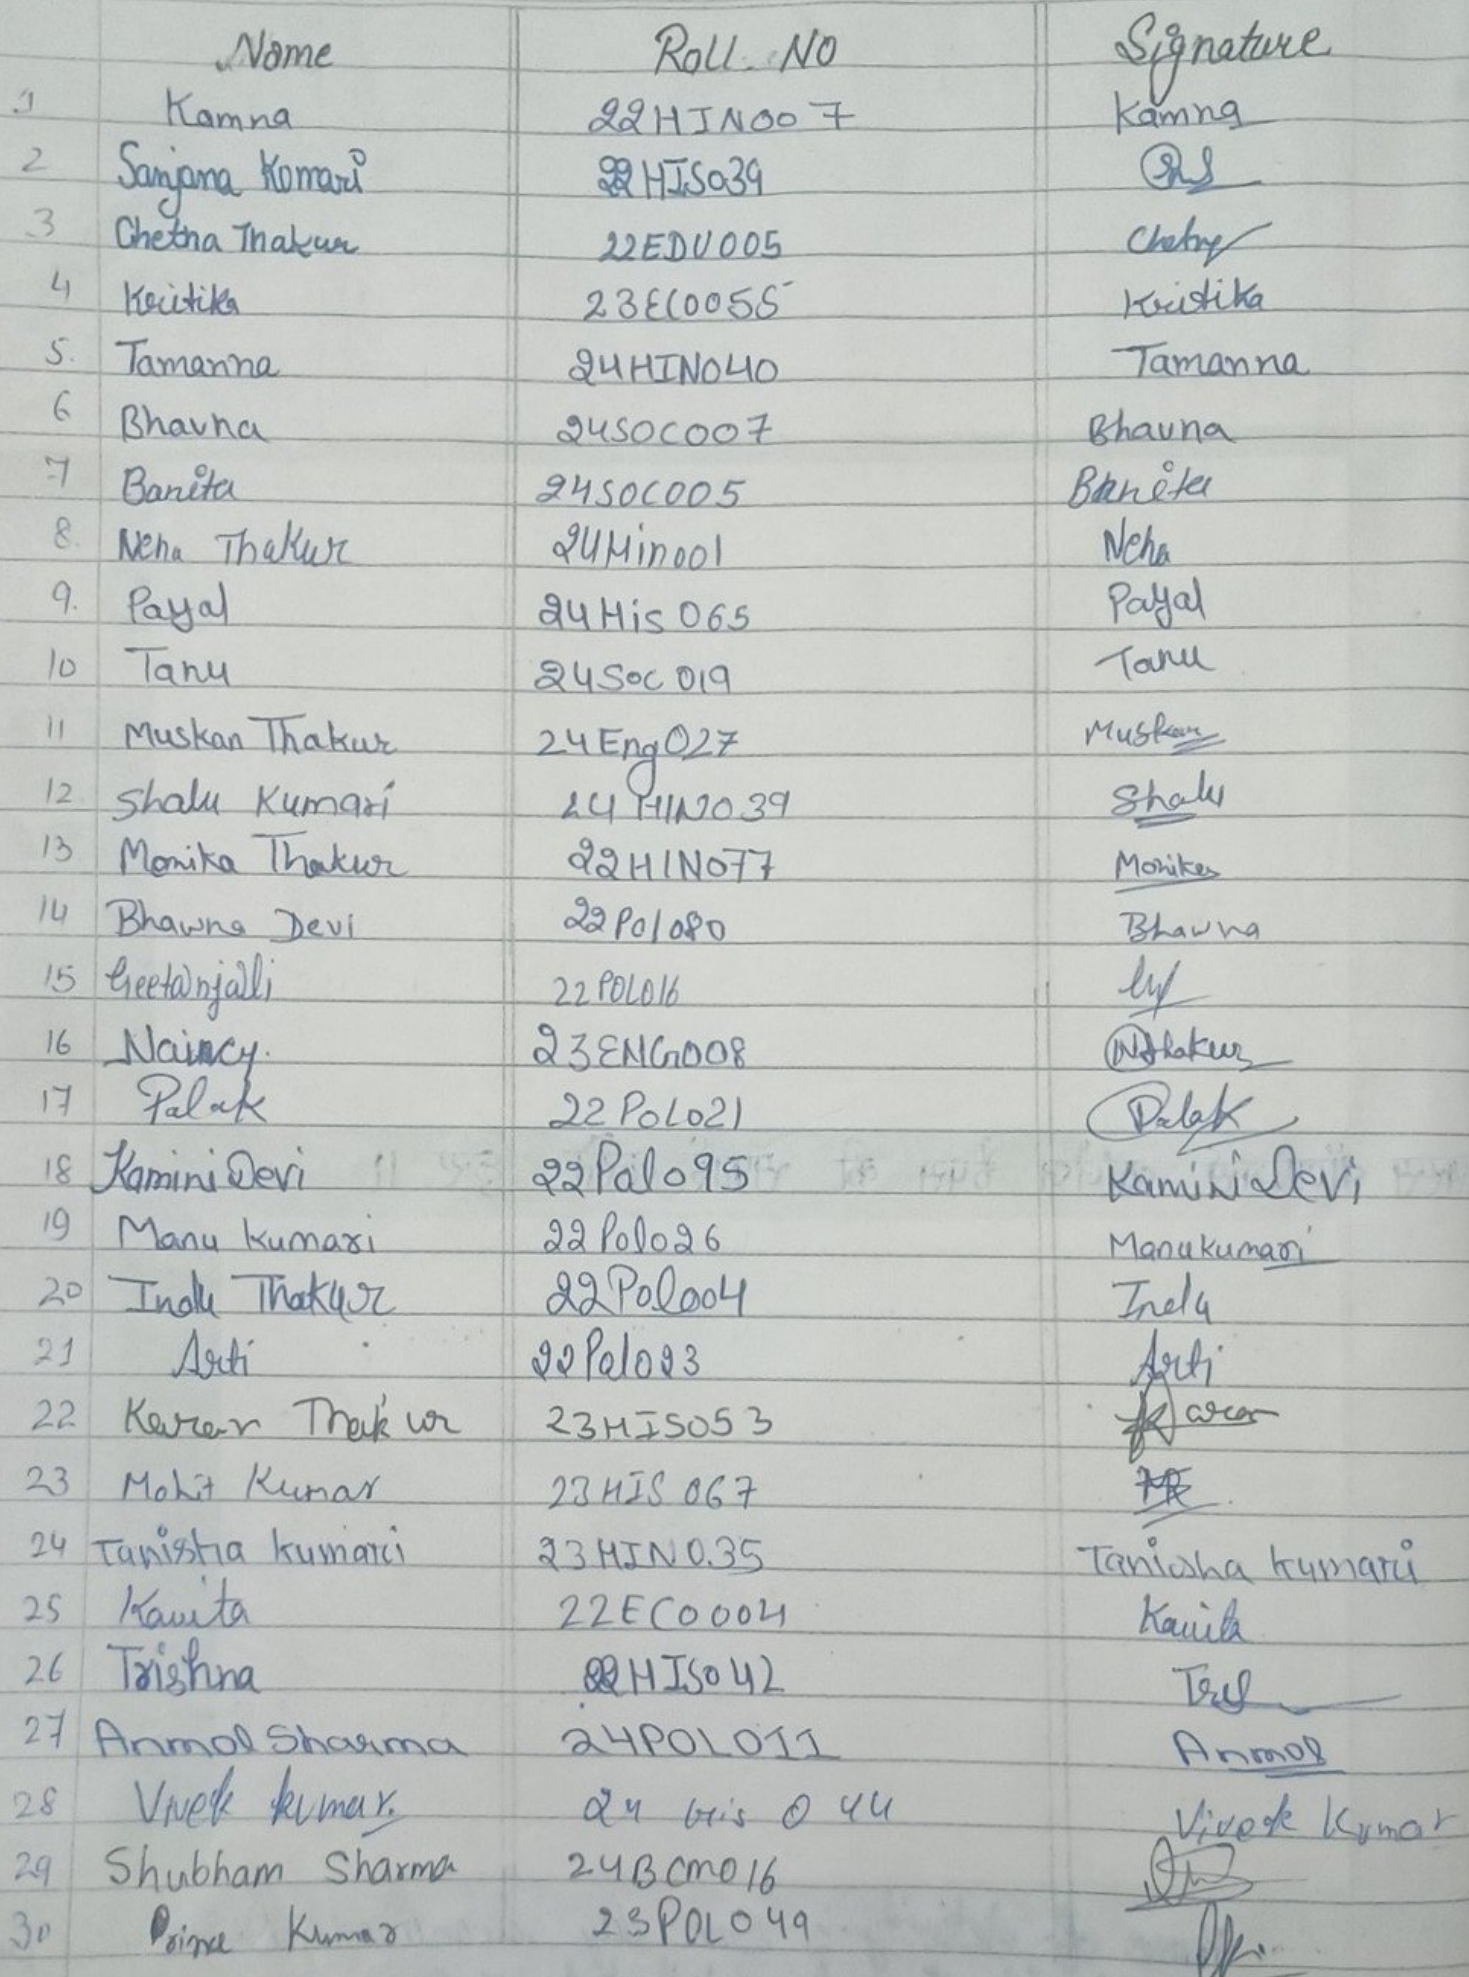 Name Roll. NO Signature
1 Kamna 22HIN007 Kamna
2 Sanjana Komari 22HIS039
3 Chetna Thakur 22EDU005 Chetna
4 Kritika 23ECO055 Kritika
5. Tamanna 24HIN040 Tamanna
6 Bhavna 24SOC007 Bhavna
7 Banita 24SOC005 Banita
8. Neha Thakur 24Hin001 Neha
9. Payal 24His 065 Payal
10 Tanu 24Soc 019 Tanu
11 Muskan Thakur 24Eng027 Muskan
12 Shalu Kumari 24HIN039 Shalu
13 Monika Thakur 22HIN077 Monika
14 Bhawna Devi 22Pol080 Bhawna
15 Geetanjali 22POL016
16 Naincy. 23ENG008 NThakur
17 Palak 22POL021 Palak
18 Kamini Devi 22Pol095 Kamini Devi
19 Manu Kumari 22Pol026 Manu kumari
20 Indu Thakur 22Pol004 Indu
21 Arti 22Pol023 Arti
22 Karan Thakur 23HIS053 Karan
23 Mohit Kumar 23HIS 067 MK
24 Tanisha Kumari 23HIN0.35 Tanisha Kumari
25 Kavita 22ECO004 Kavita
26 Trishna 22HIS042
27 Anmol Sharma 24POL011 Anmol
28 Vivek kumar. 24 his 044 Vivek Kumar
29 Shubham Sharma 24BCM016
30 Prince Kumar 23POL049